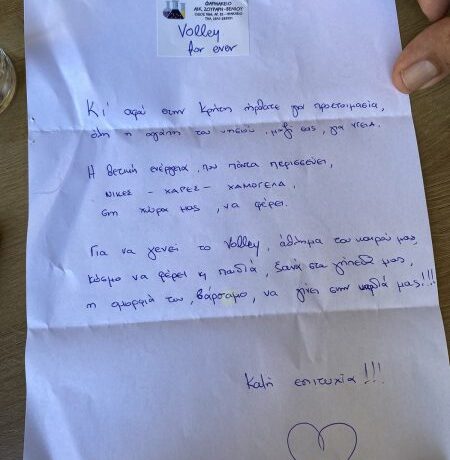 ΦΑΡΜΑΚΕΙΟ
Volley
for ever
Κι' αφού στην Κρήτη ήρθατε για προετοιμασία,
όλη η αγάπη του νησιού, μαζί σας, για υγεία.
Η θετική ενέργεια, που πάντα περισσεύει,
ΝΙΚΕΣ - ΧΑΡΕΣ - ΧΑΜΟΓΕΛΑ,
στη χώρα μας, να φέρει.
Για να γενεί το Volley, άθλημα του καιρού μας,
κόσμο να φέρει κ παιδιά, ξανά στα γήπεδά μας,
η ομορφιά του, βάρσαμο, να γίνει στην καρδιά μας!!!
Καλή επιτυχία!!!